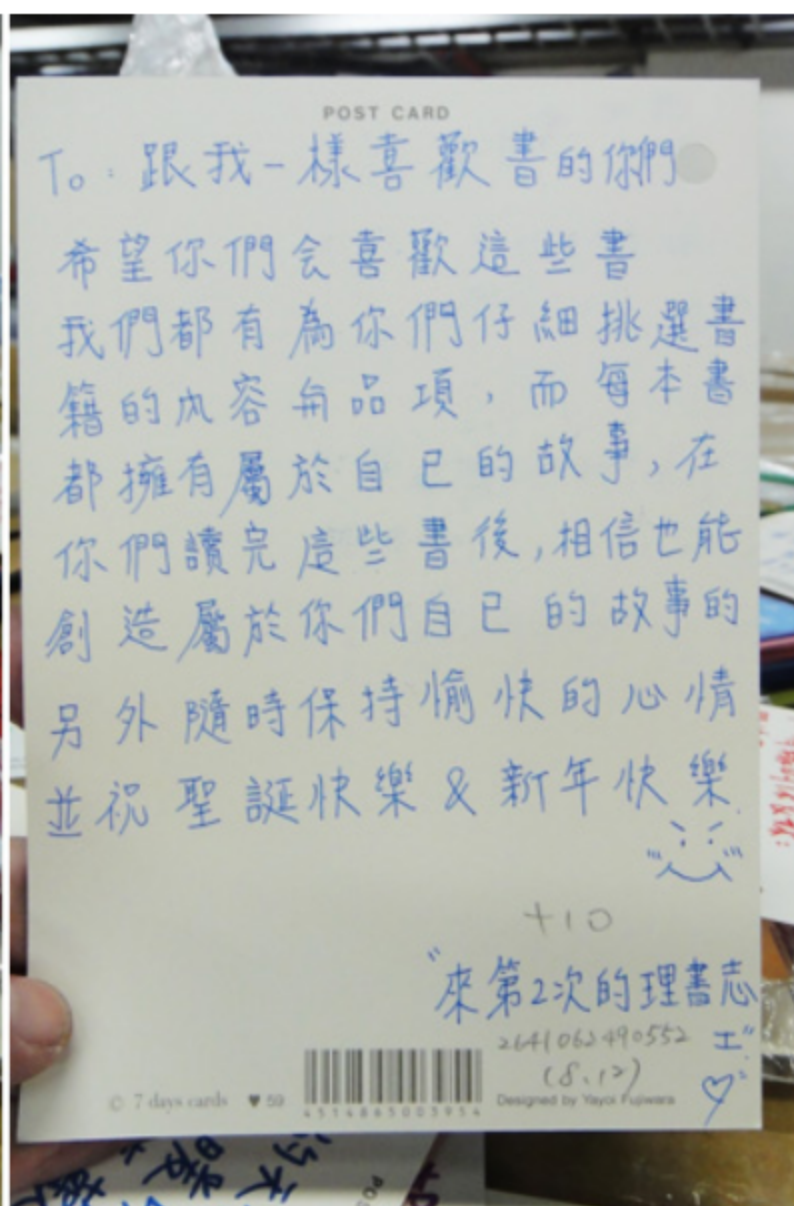 POST CARD
To：跟我一樣喜歡書的你們
希望你們会喜歡這些書
我們都有為你們仔細挑選書
籍的內容和品項，而每本書
都擁有屬於自己的故事，在
你們讀完這些書後，相信也能
創造屬於你們自己的故事的
另外隨時保持愉快的心情
並祝聖誕快樂 & 新年快樂
+10
"來第2次的理書志
工"
2641062490552
(8.12)
© 7 days cards ♥ 59
4514865003954
Designed by Yayoi Fujiwara